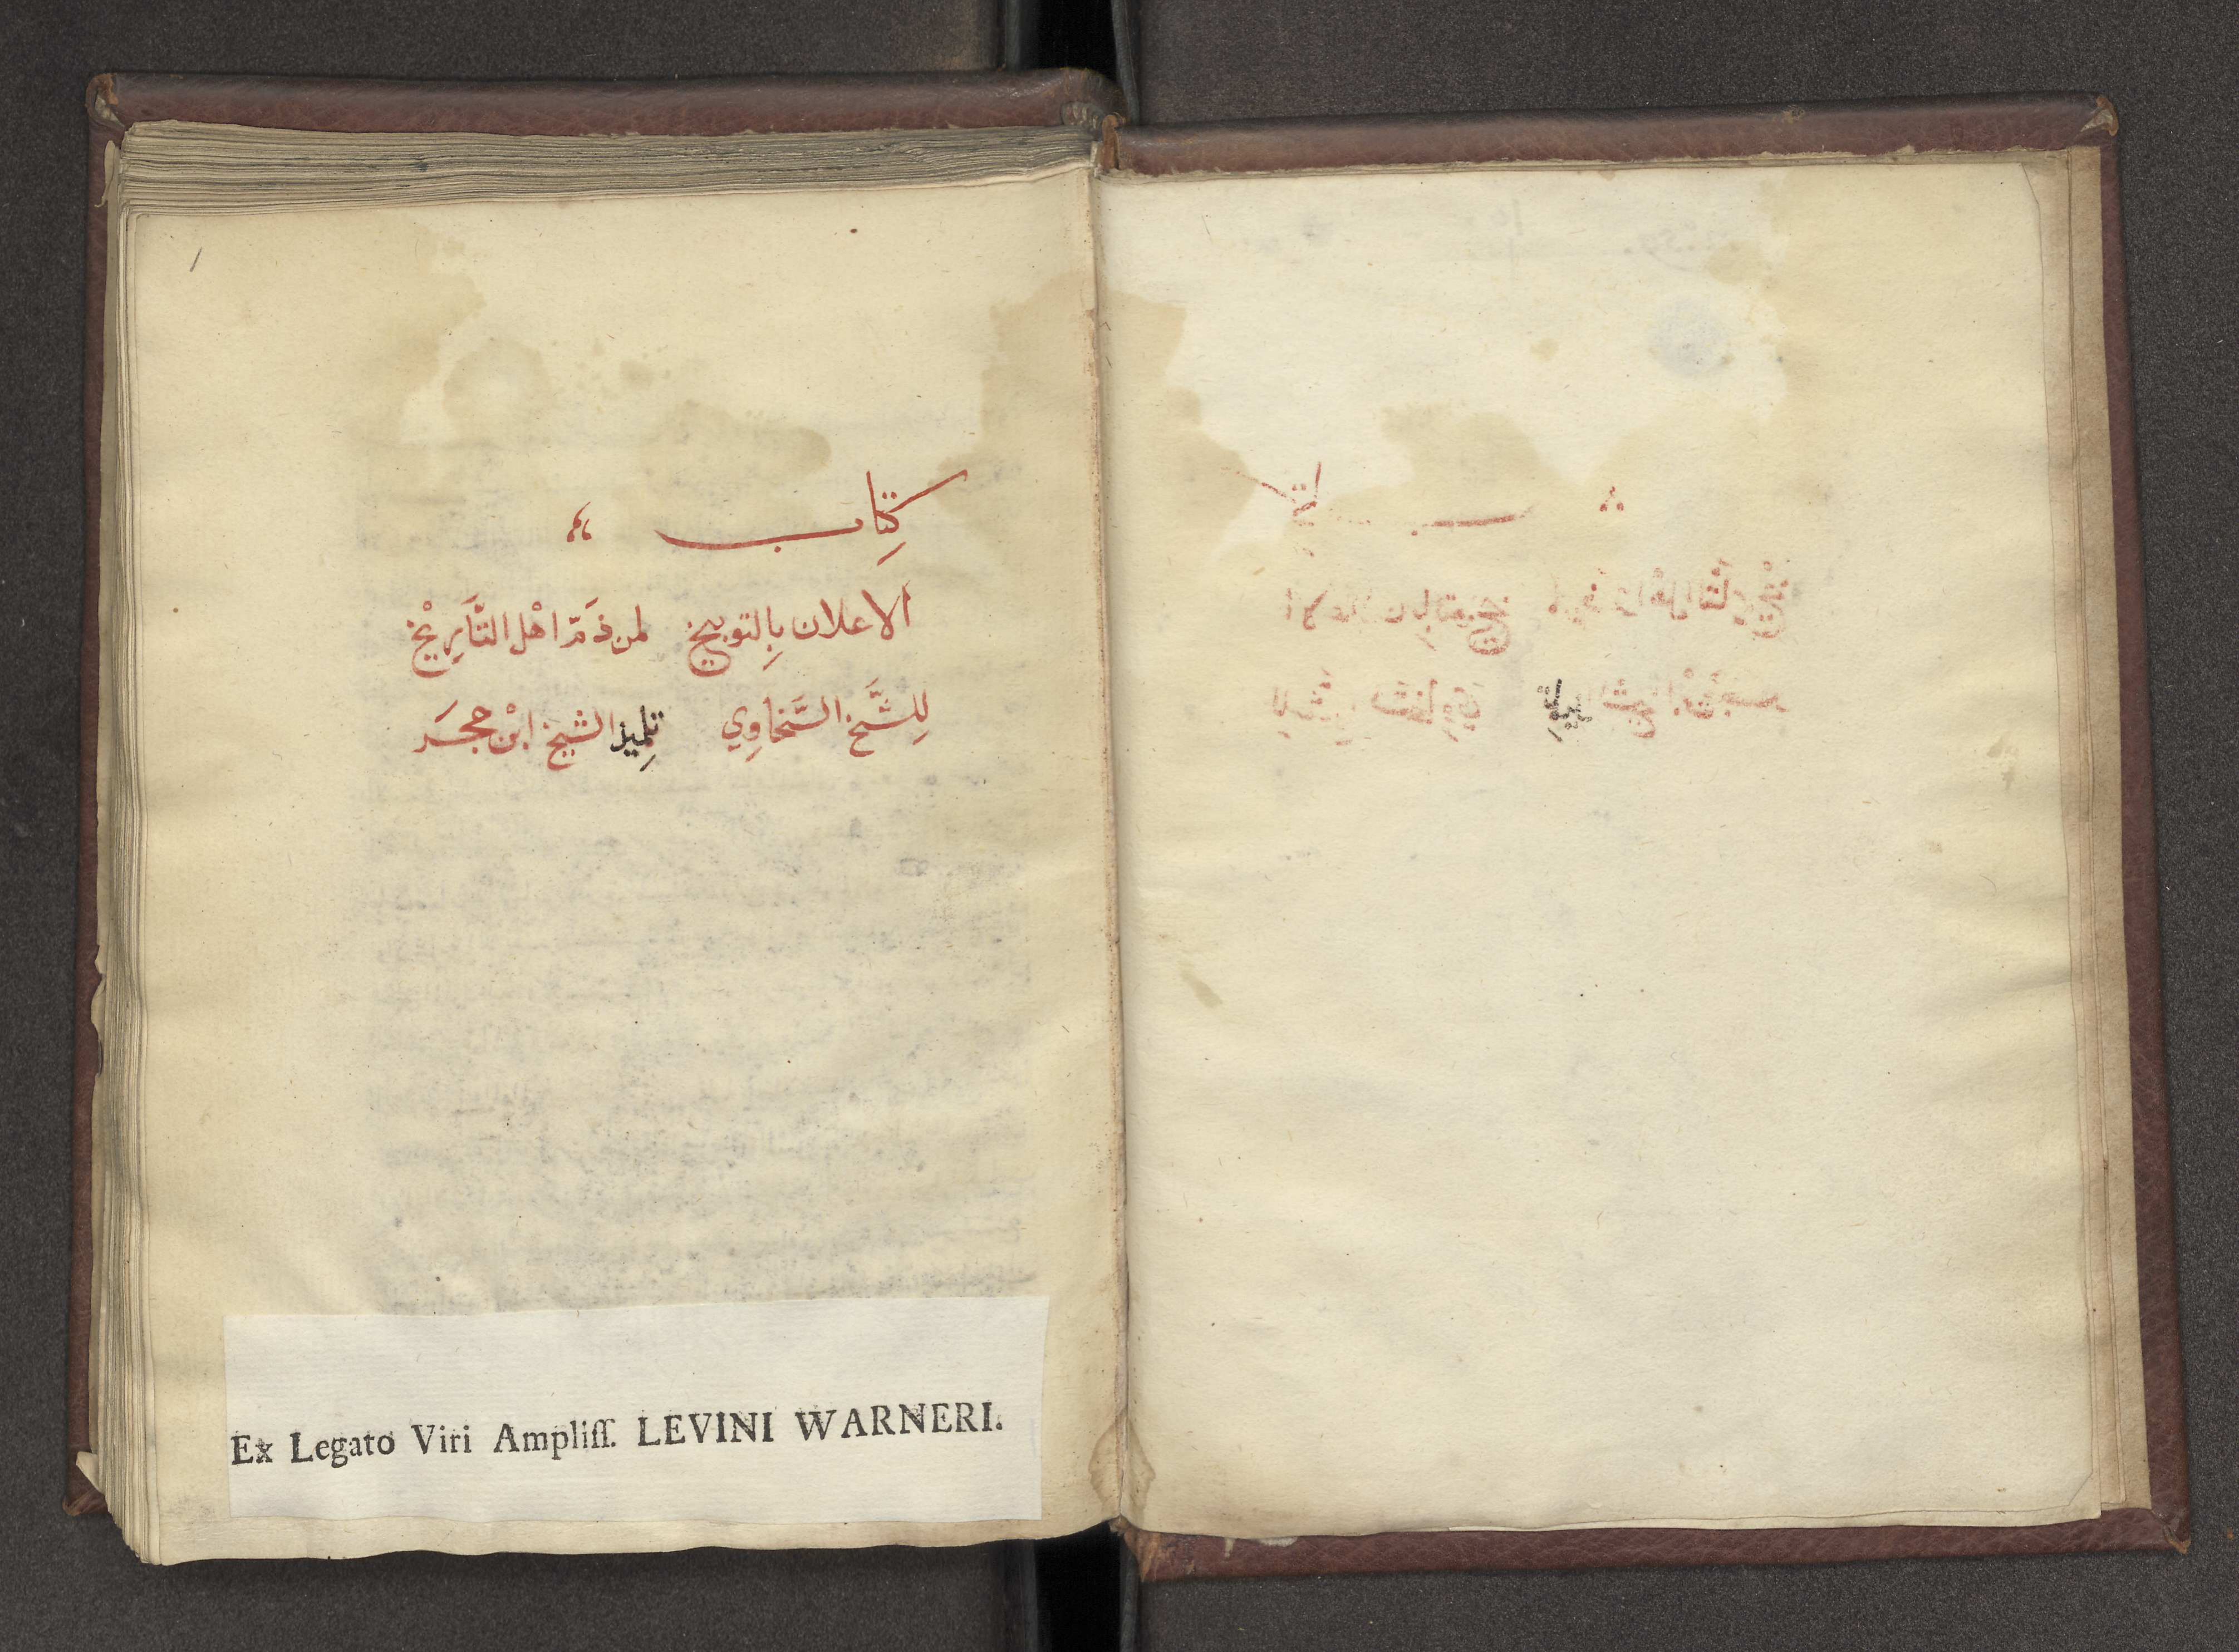 1
كِتَاب
الاعلان بِالتوبيخ لمن ذَمّ اهْل التَّأرِيْخ
لِلشَّيخ السَّخاوِي تلِميذ الشيخ ابْن حجَر
Ex Legato Viri Ampliſſ. LEVINI WARNERI.